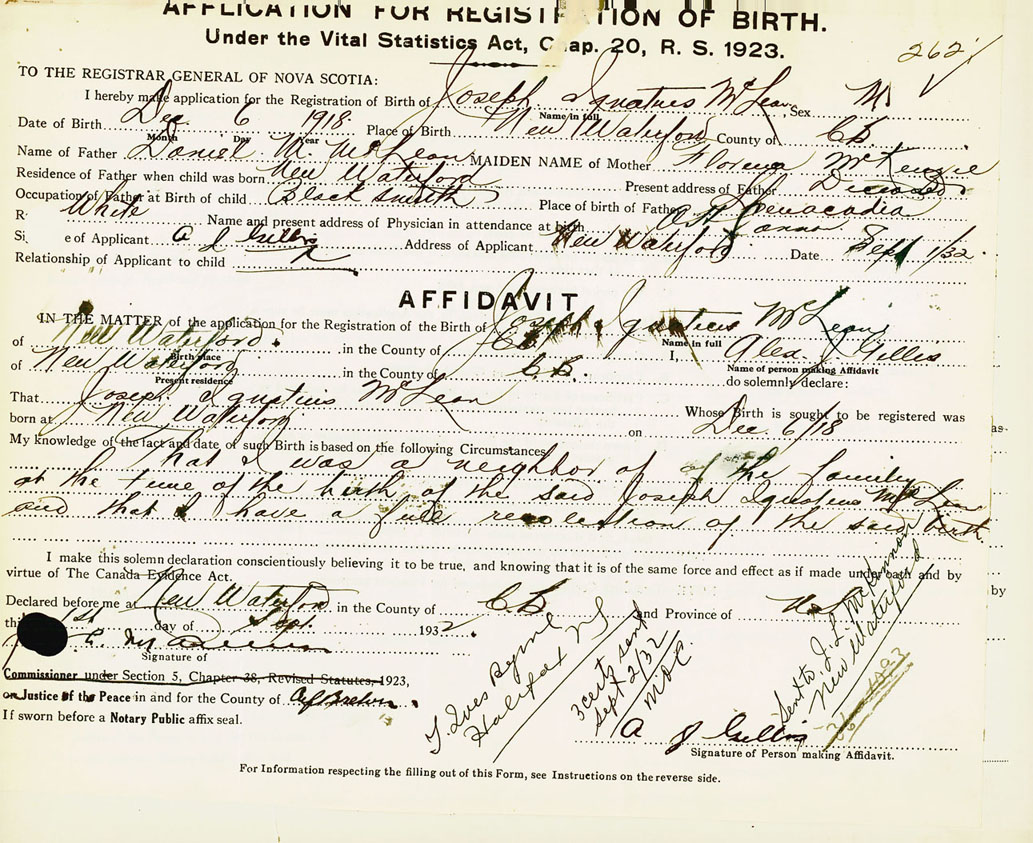 APPLICATION FOR REGISTRATION OF BIRTH.
Under the Vital Statistics Act, Chap. 20, R. S. 1923.
262
TO THE REGISTRAR GENERAL OF NOVA SCOTIA:
I hereby make application for the Registration of Birth of Joseph Ignatius McLean Sex M
Name in full
Date of Birth Dec 6 1918 Place of Birth New Waterford County of C.B.
Month Day Year
Name of Father Daniel M. McLean MAIDEN NAME of Mother Florence McKenzie
Residence of Father when child was born New Waterford Present address of Father Deceased
Occupation of Father at Birth of child Black smith Place of birth of Father Benacadia
R White Name and present address of Physician in attendance at birth
Si e of Applicant A J Gillis Address of Applicant New Waterford Date Sept 1/32
Relationship of Applicant to child
AFFIDAVIT
IN THE MATTER of the application for the Registration of the Birth of Joseph Ignatius McLean
Name in full
of New Waterford in the County of C.B. I, Alex. J Gillis
Birth place Name of person making Affidavit
of New Waterford in the County of C.B. do solemnly declare:
Present residence
That Joseph Ignatius McLean Whose Birth is sought to be registered was
born at New Waterford on Dec. 6/18
My knowledge of the fact and date of such Birth is based on the following Circumstances
That I was a neighbor of of the family
at the time of the birth of the said Joseph Ignatius McLean
and that I have a full recolection of the said birth
I make this solemn declaration conscientiously believing it to be true, and knowing that it is of the same force and effect as if made under oath and by
virtue of The Canada Evidence Act.
Declared before me at New Waterford in the County of C.B. and Province of N.S.
thi 1st day of Sept. 1932.
Signature of
Commissioner under Section 5, Chapter 38, Revised Statutes, 1923,
or Justice of the Peace in and for the County of Cape Breton
If sworn before a Notary Public affix seal.
Halifax NS
3 certs sent
Sept 2/32
Sent to J. L. McKinnon
New Waterford
A J Gillis
Signature of Person making Affidavit.
For Information respecting the filling out of this Form, see Instructions on the reverse side.
as-
by